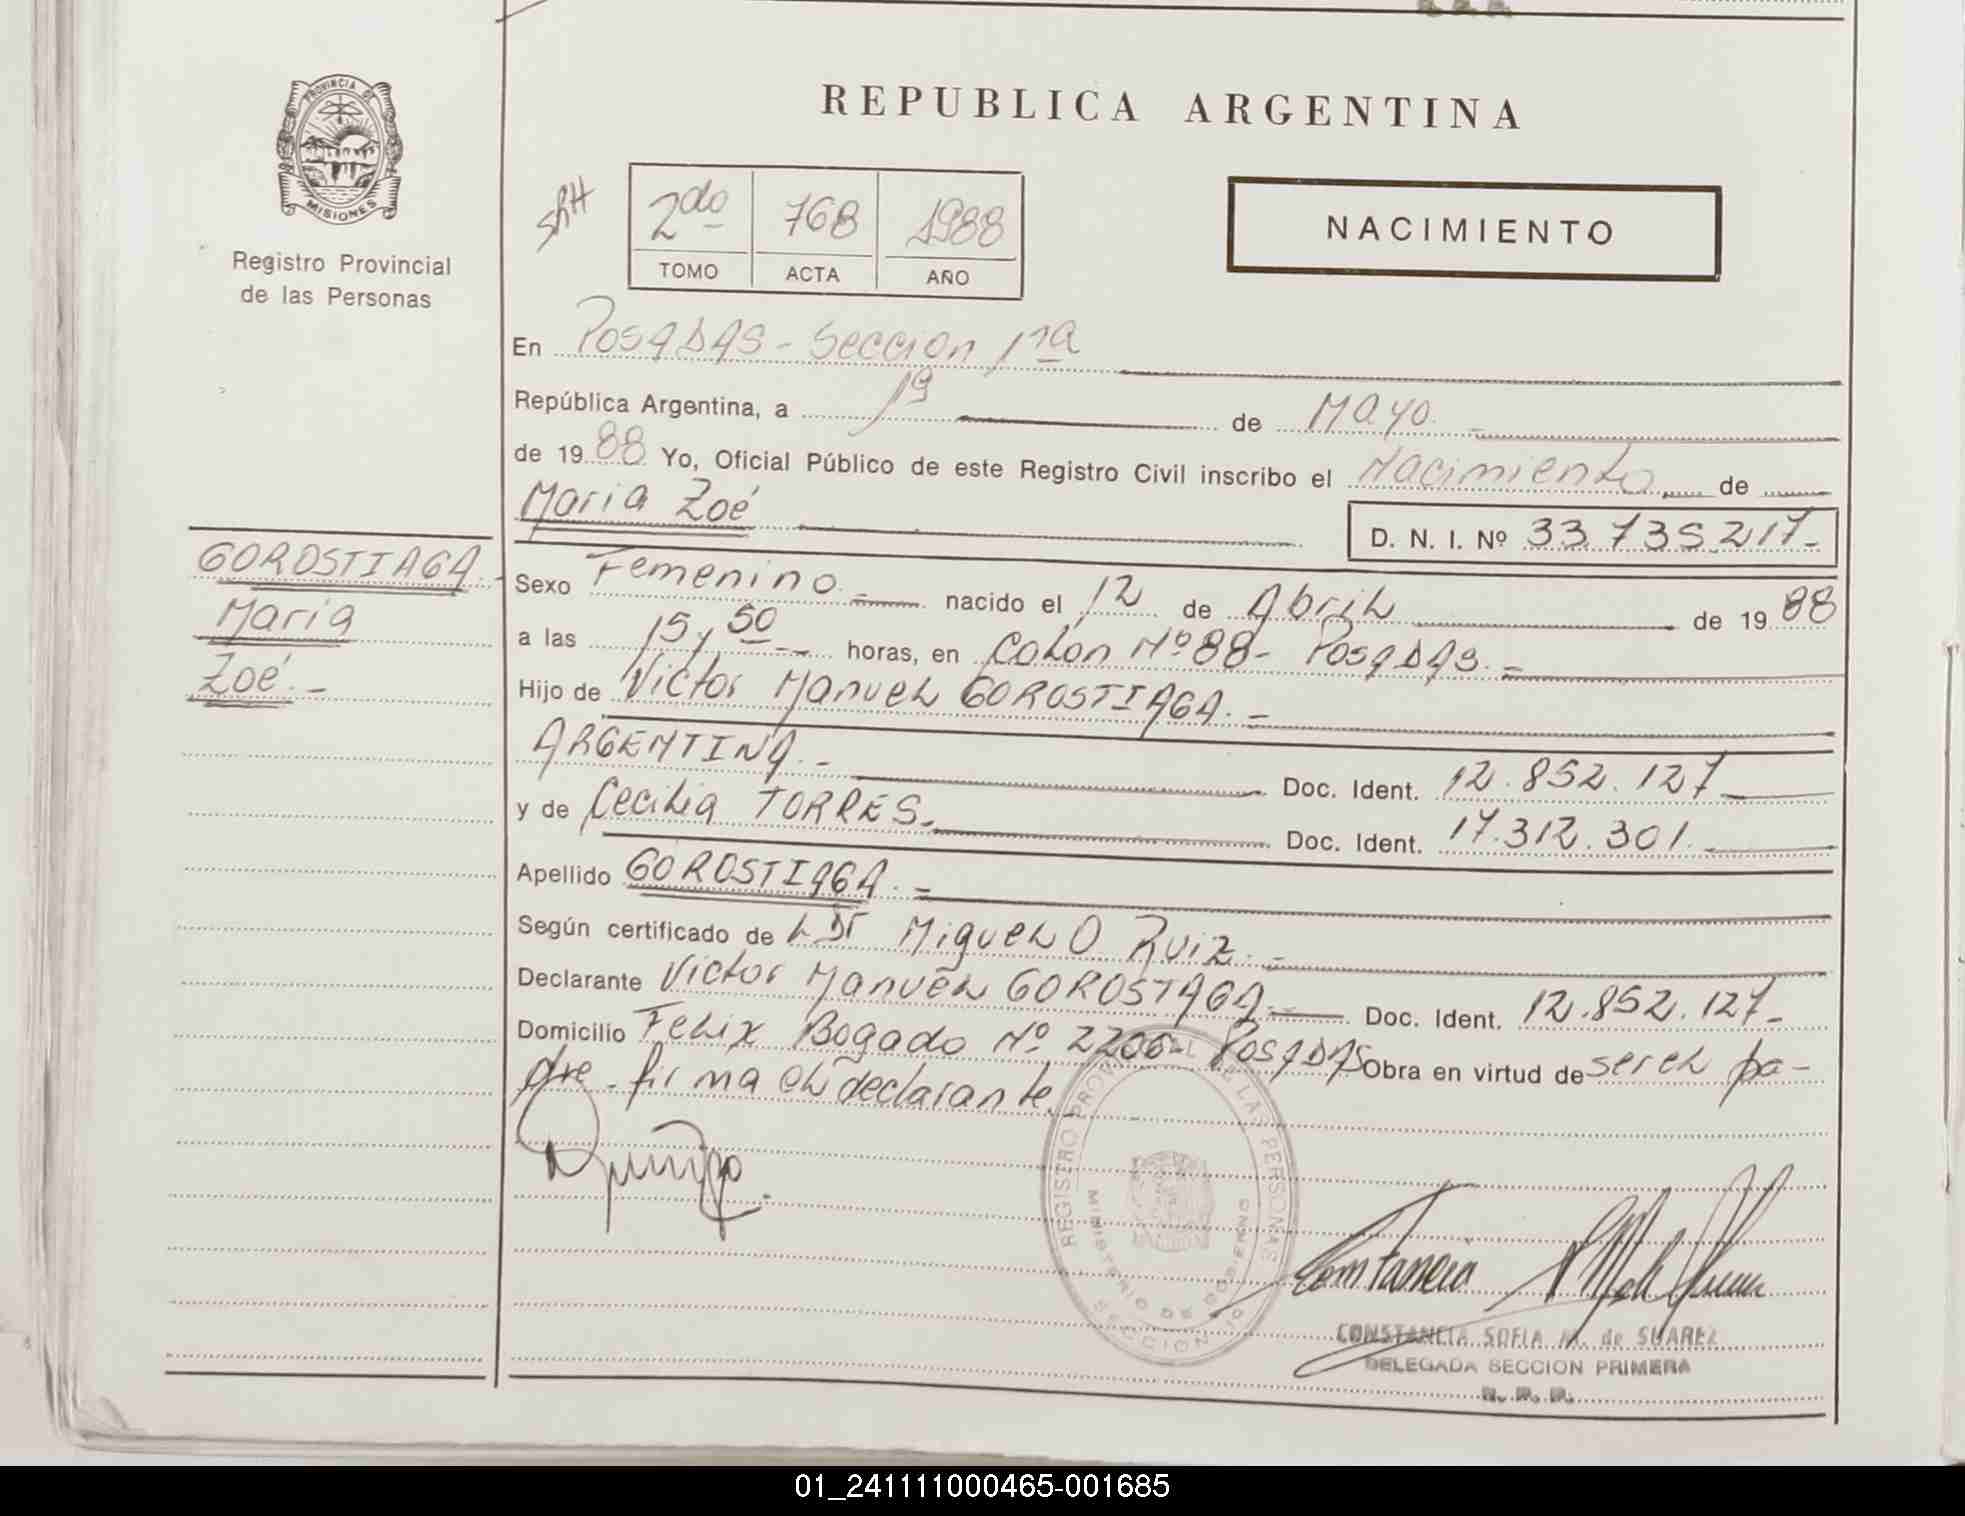 PROVINCIA DE
MISIONES
Registro Provincial
de las Personas
REPUBLICA ARGENTINA
2do 768 1988
TOMO ACTA AÑO
NACIMIENTO
En Posadas - Seccion 1ra
República Argentina, a 19 de Mayo.
de 1988 Yo, Oficial Público de este Registro Civil inscribo el Nacimiento de
Maria Zoé
D. N. I. Nº 33.735.217-
GOROSTIAGA.
Maria
Zoé.-
Sexo Femenino.- nacido el 12 de Abril de 1988
a las 15 y 50 horas, en Colon Nº 88- Posadas.-
Hijo de Victor Manuel GOROSTIAGA.-
ARGENTINA.- Doc. Ident. 12.852.127
y de Cecilia TORRES.- Doc. Ident. 17.312.301.
Apellido GOROSTIAGA.-
Según certificado de Miguel O Ruiz.-
Declarante Victor Manuel GOROSTAGA Doc. Ident. 12.852.127-
Domicilio Felix Bogado Nº 2206- Posadas Obra en virtud de ser el pa-
dre - firma el declarante.-
REGISTRO PROVINCIAL DE LAS PERSONAS
MINISTERIO DE GOBIERNO
SECCION 1º
CONSTANCIA SOFIA M. de SUAREZ
DELEGADA SECCION PRIMERA
R. P. P.
01_241111000465-001685